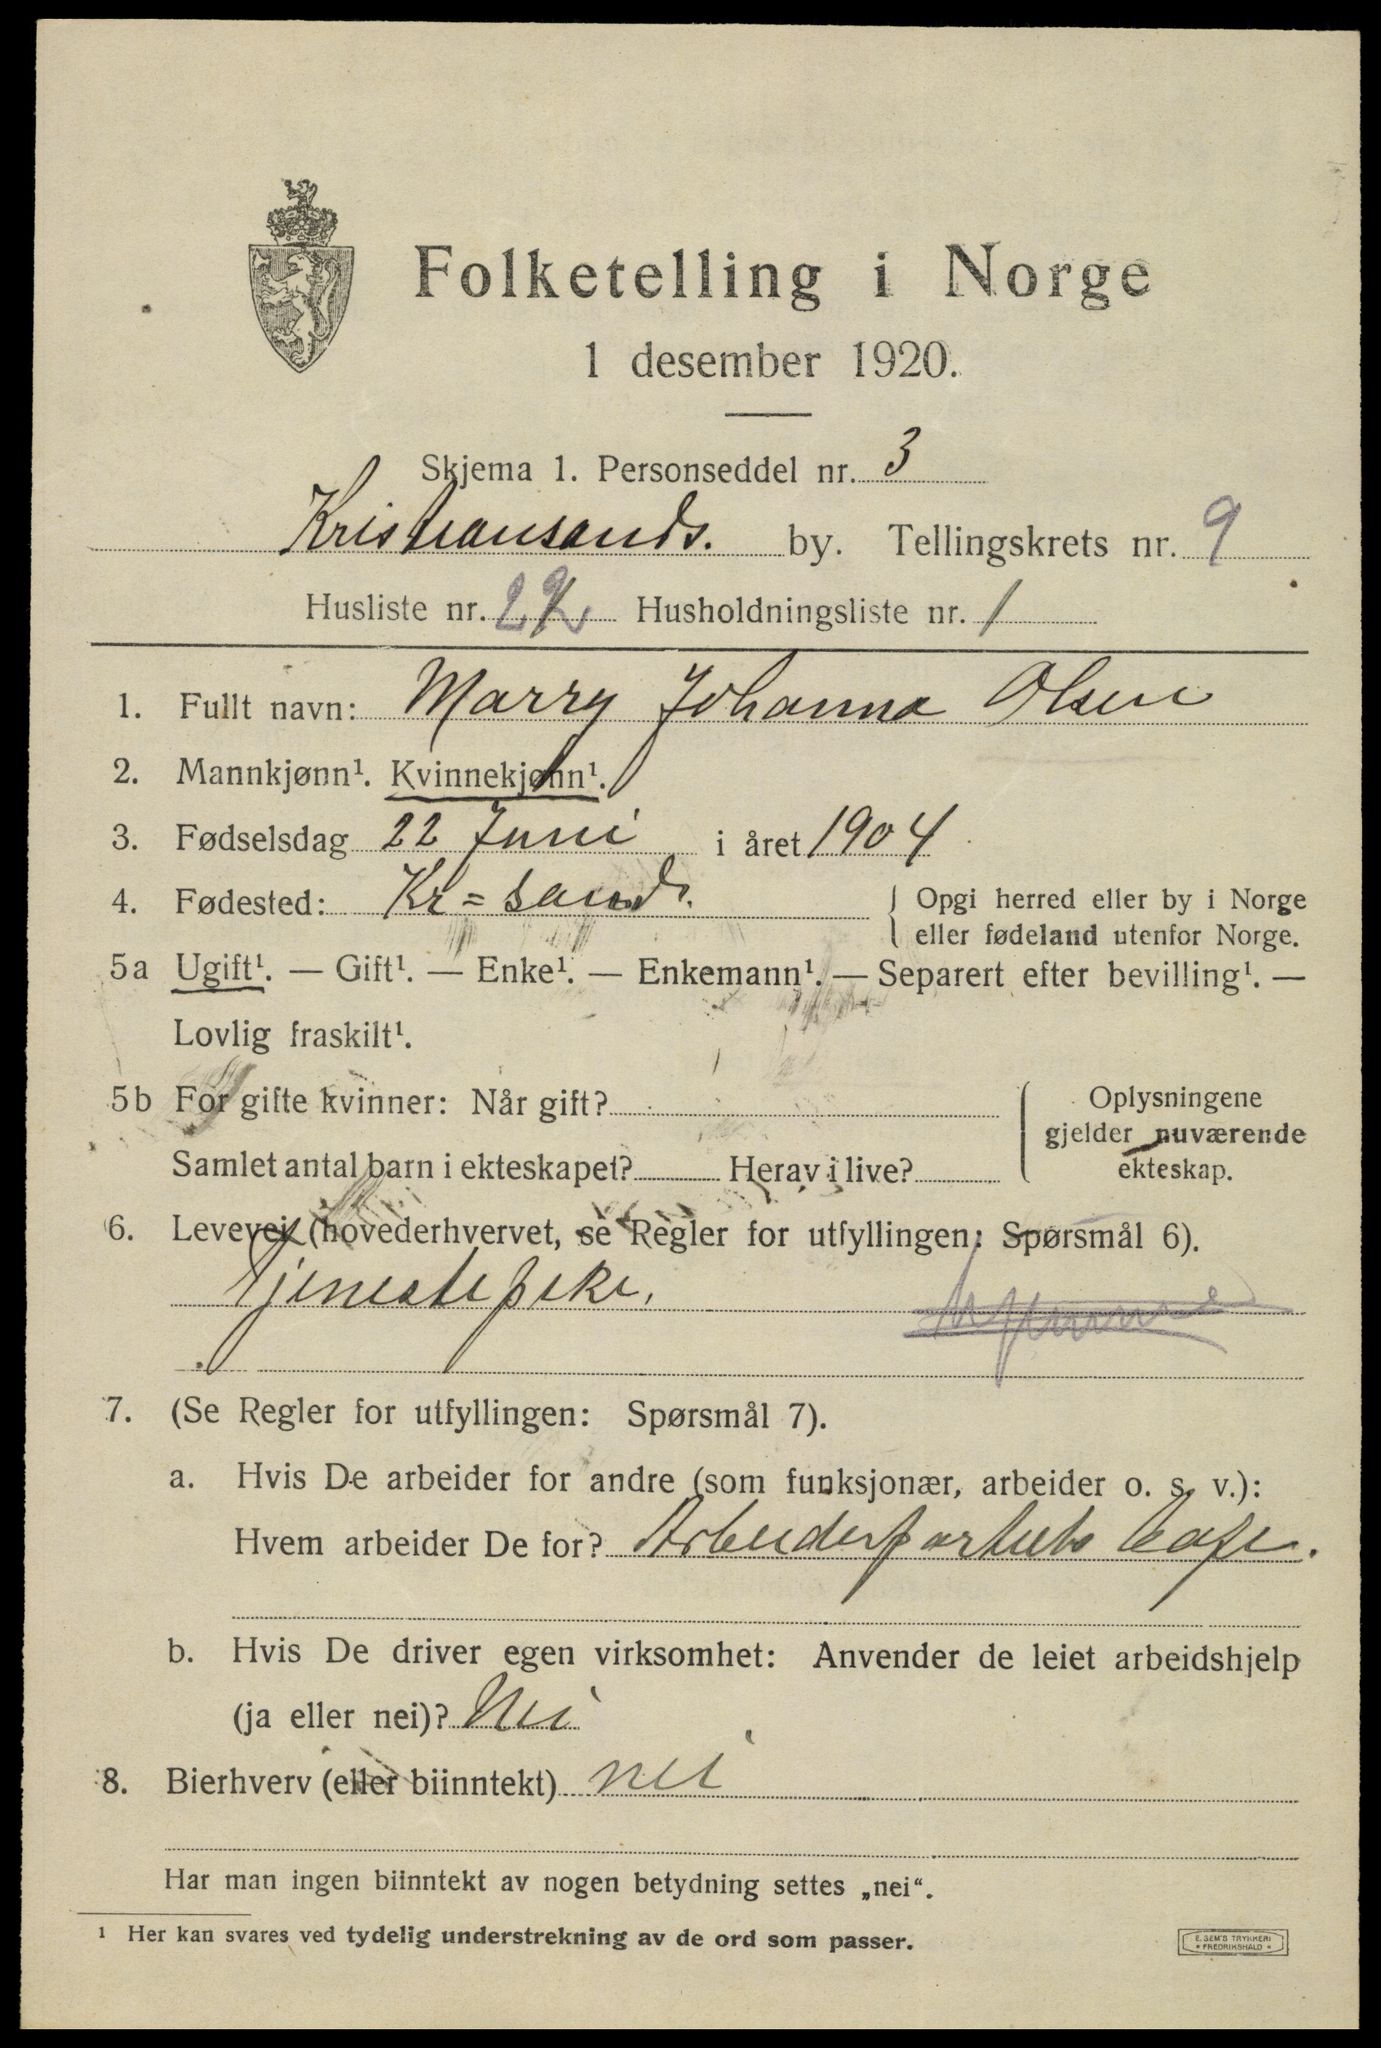 Folketelling i Norge
1 desember 1920.
Skjema 1. Personseddel nr. 3
Kristiansands. by. Tellingskrets nr. 9
Husliste nr. 22 Husholdningsliste nr. 1
1. Fullt navn: Marry Johanna Olsen
2. Mannkjønn¹. Kvinnekjønn¹.
3. Fødselsdag 22 Juni i året 1904
4. Fødested: Kr=sands. { Opgi herred eller by i Norge
eller fødeland utenfor Norge.
5a Ugift¹. — Gift¹. — Enke¹. — Enkemann¹. — Separert efter bevilling¹. —
Lovlig fraskilt¹.
5b For gifte kvinner: Når gift? { Oplysningene
gjelder nuværende
Samlet antal barn i ekteskapet? Herav i live? ekteskap.
6. Levevei (hovederhvervet, se Regler for utfyllingen: Spørsmål 6).
Tjenestepike.
7. (Se Regler for utfyllingen: Spørsmål 7).
a. Hvis De arbeider for andre (som funksjonær, arbeider o. s. v.):
Hvem arbeider De for? Arbeiderpartiets Cafe.
b. Hvis De driver egen virksomhet: Anvender de leiet arbeidshjelp
(ja eller nei)? Nei
8. Bierhverv (eller biinntekt) nei
Har man ingen biinntekt av nogen betydning settes „nei“.
¹ Her kan svares ved tydelig understrekning av de ord som passer.
E. SEM'S TRYKKERI
* FREDRIKSHALD *